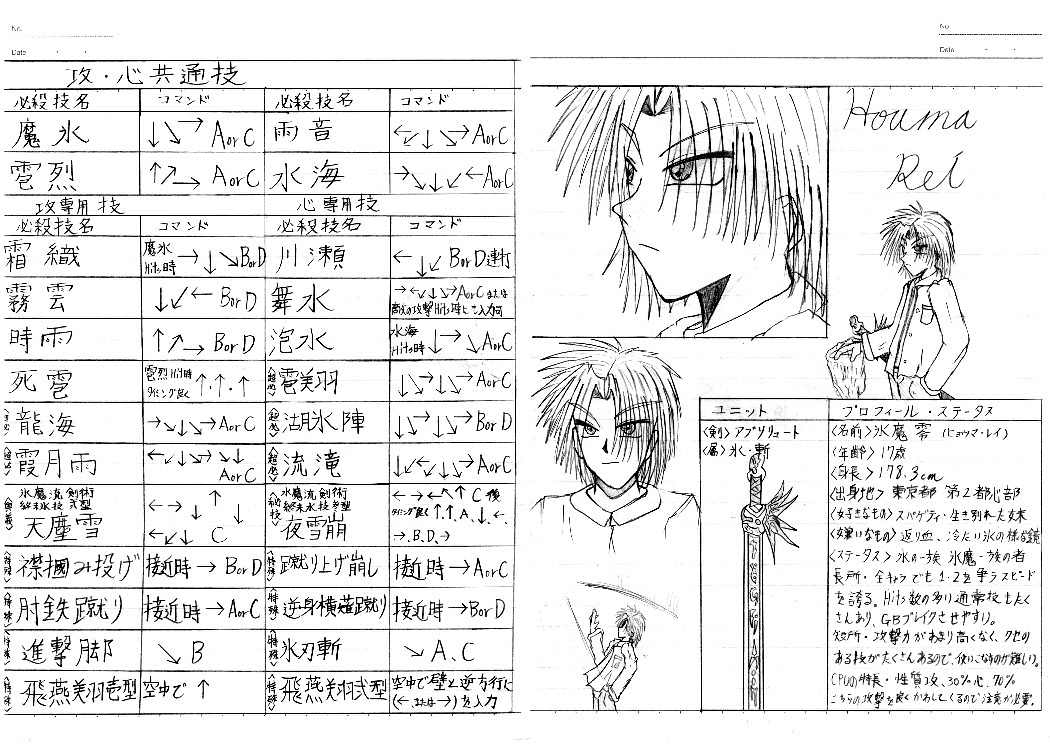 No.
Date
攻・心共通技
必殺技名 コマンド 必殺技名 コマンド
魔氷 ↓↘→ AorC 雨音 ←↙↓↘→ AorC
雹烈 ↑↗→ AorC 水海 →↘↓↙← AorC
攻専用技 心専用技
必殺技名 コマンド 必殺技名 コマンド
霜織 魔氷Hits時 →↓↘ BorD 川瀬 ←↓↙ BorD連打
霧雲 ↓↙← BorD 舞水
時雨 ↑↗→ BorD 泡水 水海Hits時 ↓→↘ AorC
死雹 雹烈Hit時 タイミング良く ↑・↑・↑ 雹美羽 AorC
龍海 →↘↓↘→ AorC BorD
霞月雨 AorC 流滝 AorC
氷魔流剣術 氷魔流剣術
天塵雪 夜雪崩
襟掴み投げ 接近時→BorD 蹴り上げ崩し 接近時→AorC
肘鉄蹴り 接近時→AorC 逆身横薙蹴り 接近時→BorD
進撃脚 ↘ B 氷刃斬 ↘ A、C
飛燕美羽壱型 空中で ↑ 飛燕美羽弐型 空中で壁と逆方向に(←または→)を入力
No.
Date
Houma
Rei
ユニット
<剣> アブソリュート
<属> 氷・斬
プロフィール・ステータス
<名前> 氷魔 零 (ヒョウマ・レイ)
<年齢> 17歳
<身長> 178.3cm
<出身地> 東京都 第2都北部
<好きなもの> スパゲティ・生き別れた妹
<嫌いなもの> 返り血、冷たい氷の様な鏡
<ステータス> 氷の一族 氷魔一族の者
長所・全キャラでも1・2を争うスピード
を誇る。Hits数の多い通常技もたく
さんあり、GBブレイクさせやすい。
短所・攻撃力があまり高くなく、クセの
ある技がたくさんあるので、使いこなすのが難しい。
CPUの特長・性質 攻、30% 心、70%
こちらの攻撃を良くかわしてくるので注意が必要。